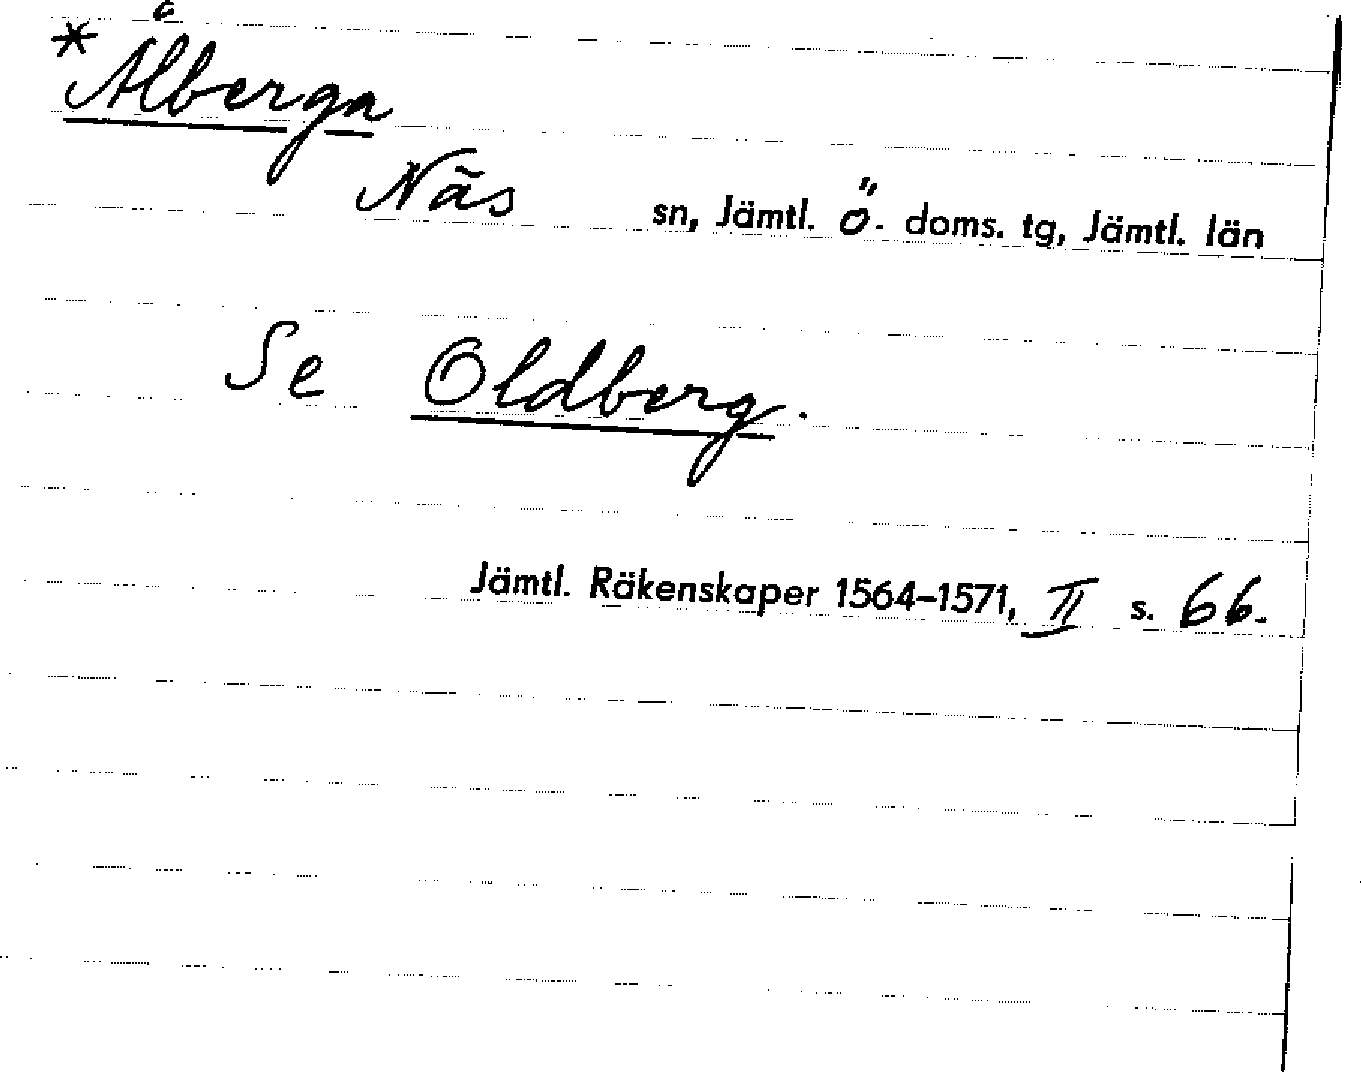 *Ålberga
Näs sn, Jämtl. ö. doms. tg, Jämtl. län
Se Oldberg.
Jämtl. Räkenskaper 1564–1571, II s. 66.